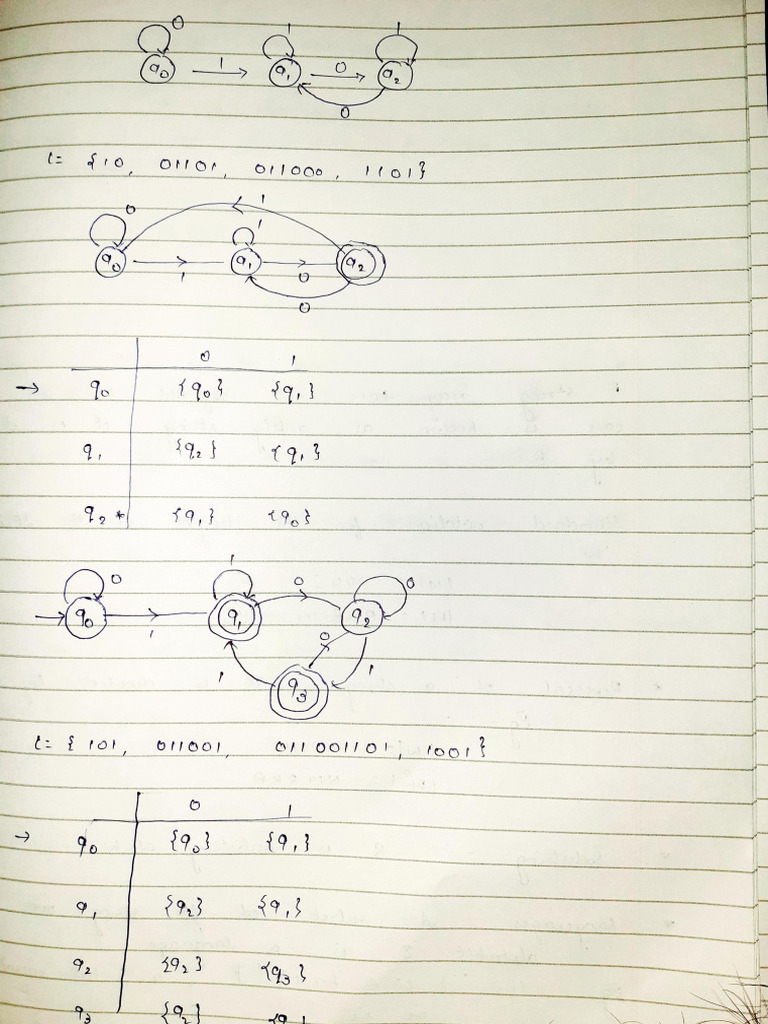 0 1 1
q0 1 q1 0 q2
0
L= {10, 01101, 011000, 1101}
1
0 1
q0 1 q1 0 q2
0
0 1
→ q0 {q0} {q1}
q1 {q2} {q1}
q2 * {q1} {q0}
1
0 0 0
q0 1 q1 q2
0
1 q3 1
L= { 101, 011001, 011001101, 1001}
0 1
→ q0 {q0} {q1}
q1 {q2} {q1}
q2 {q2} {q3}
q3 {q2}